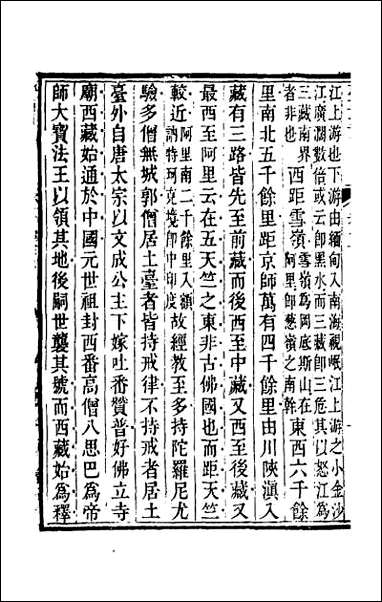 江上游也下游由緬甸入南海視岷江上游之小金沙
江廣濶數倍或云卽黑水而三藏卽三危其以怒江爲
三藏南界
者非也
西距雪嶺
雪嶺爲岡底斯山在
阿里卽葱嶺之南幹
東西六千餘
里南北五千餘里距京師萬有四千餘里由川陝滇入
藏有三路皆先至前藏而後西至中藏又西至後藏又
最西至阿里云在五天竺之東非古佛國也而距天竺
較近
阿里南二千餘里入額
訥特珂克境卽中印度
故經教至多持陀羅尼尤
驗多僧無城郭僧居土臺者皆持戒律不持戒者居土
臺外自唐太宗以文成公主下嫁吐番贊普好佛立寺
廟西藏始通於中國元世祖封西番高僧八思巴爲帝
師大寶法王以領其地後嗣世襲其號而西藏始爲釋